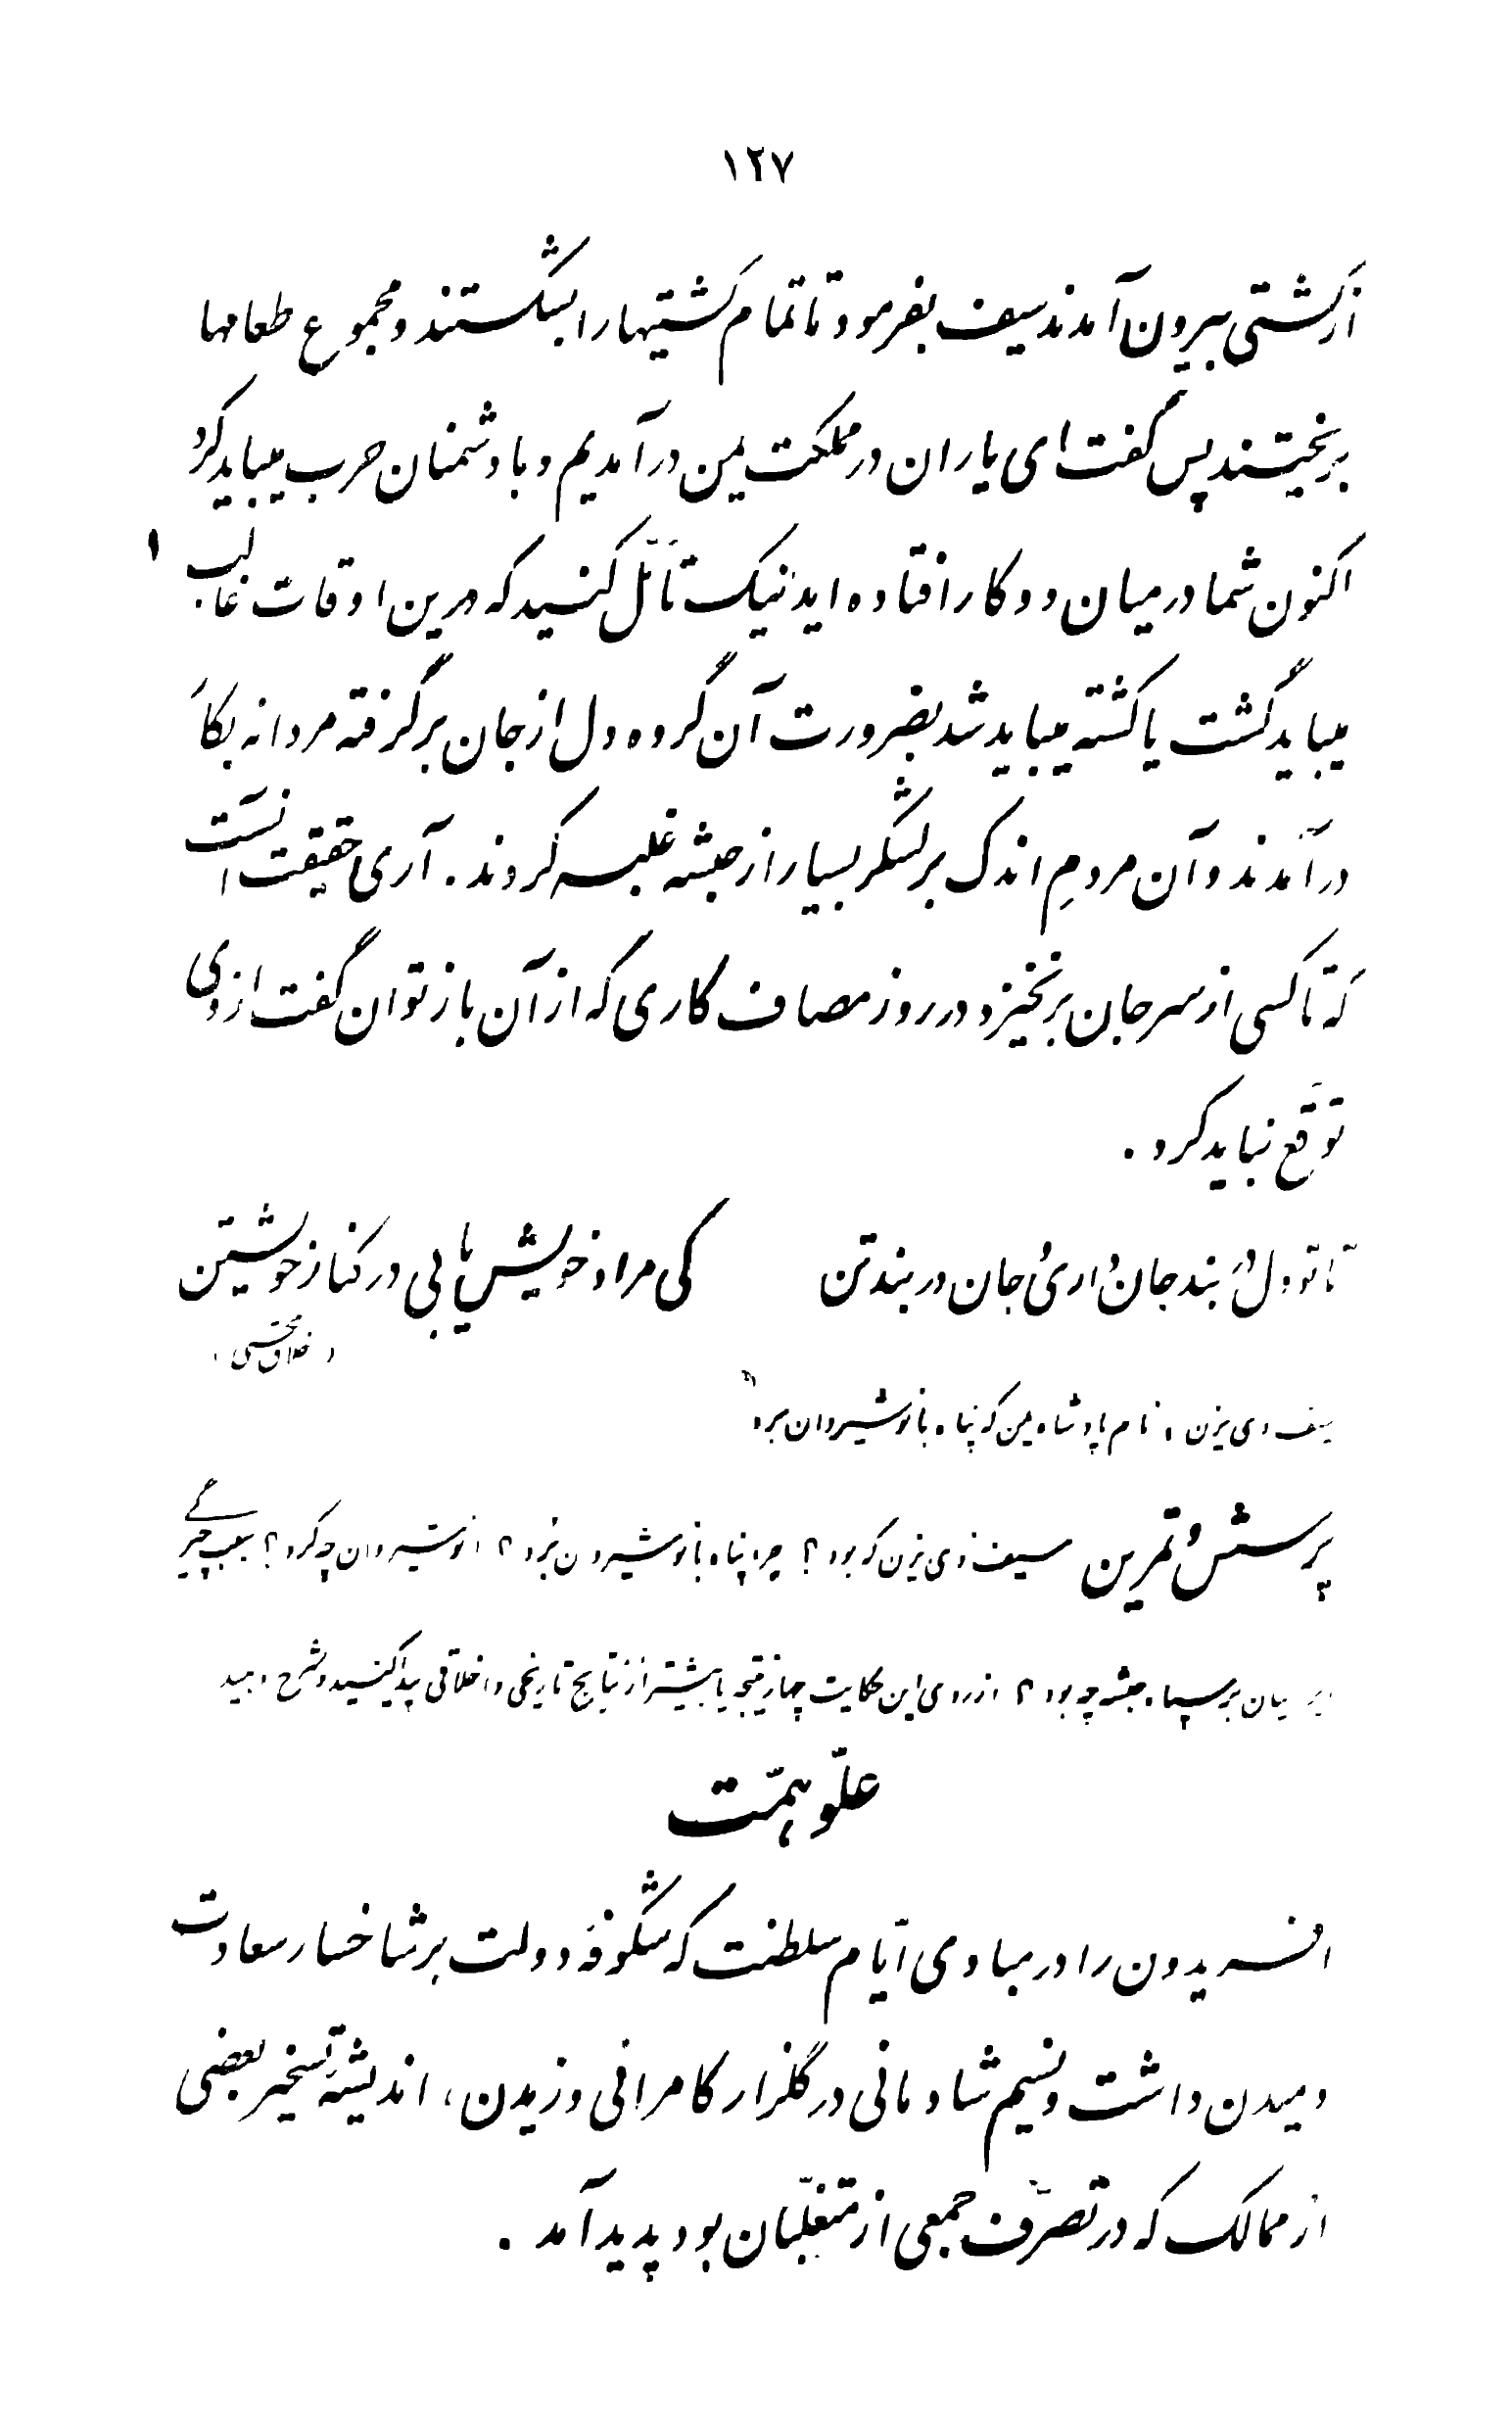 ۱۲۷
از کشتی بیرون آمدند سیف بفرمود تا تمام کشتیها را بشکستند و مجموع طعامها
بریختند پس گفت ای یاران در مملکت یمن در آمدیم و با دشمنان حرب میباید کرد
اکنون شما در میان دو کار افتاده اید نیک تأمّل کنید که درین اوقات غالب ۱
میباید گشت یا کشته میباید شد بضرورت آن گروه دل از جان برگرفته مردانه بکار
در آمدند و آن مردمِ اندک بر لشگر بسیار از حبشه غلبه کردند . آری حقیقت آنست
که تا کسی از سر جان برنخیزد در روز مصاف کاری که از آن باز توان گفت از وی
توقّع نباید کرد .
تا تو دل در بند جان داری و جان در بند تن کی مراد خویش یابی در کنار خویشتن
( اخلاق محسنی )
سیف ذی یزن : نام پادشاه یمن که پناه بانوشیروان برد
پرسش و تمرین سیف ذی یزن که بود ؟ چرا پناه بانوشیروان برد ؟ انوشیروان چه کرد ؟ سبب چیرگی
ایرانیان بر سپاه حبشه چه بود ؟ از روی این حکایت چهار نتیجه یا بیشتر از نتایج تاریخی و اخلاقی پیدا کنید و شرح دهید
علوّ همّت
افریدون را در مبادی ایّام سلطنت که شگوفهٔ دولت بر شاخسار سعادت
دمیدن داشت و نسیم شادمانی در گلزار کامرانی وزیدن ، اندیشهٔ تسخیر بعضی
از ممالک که در تصرّف جمعی از متغلّبان بود پدید آمد .